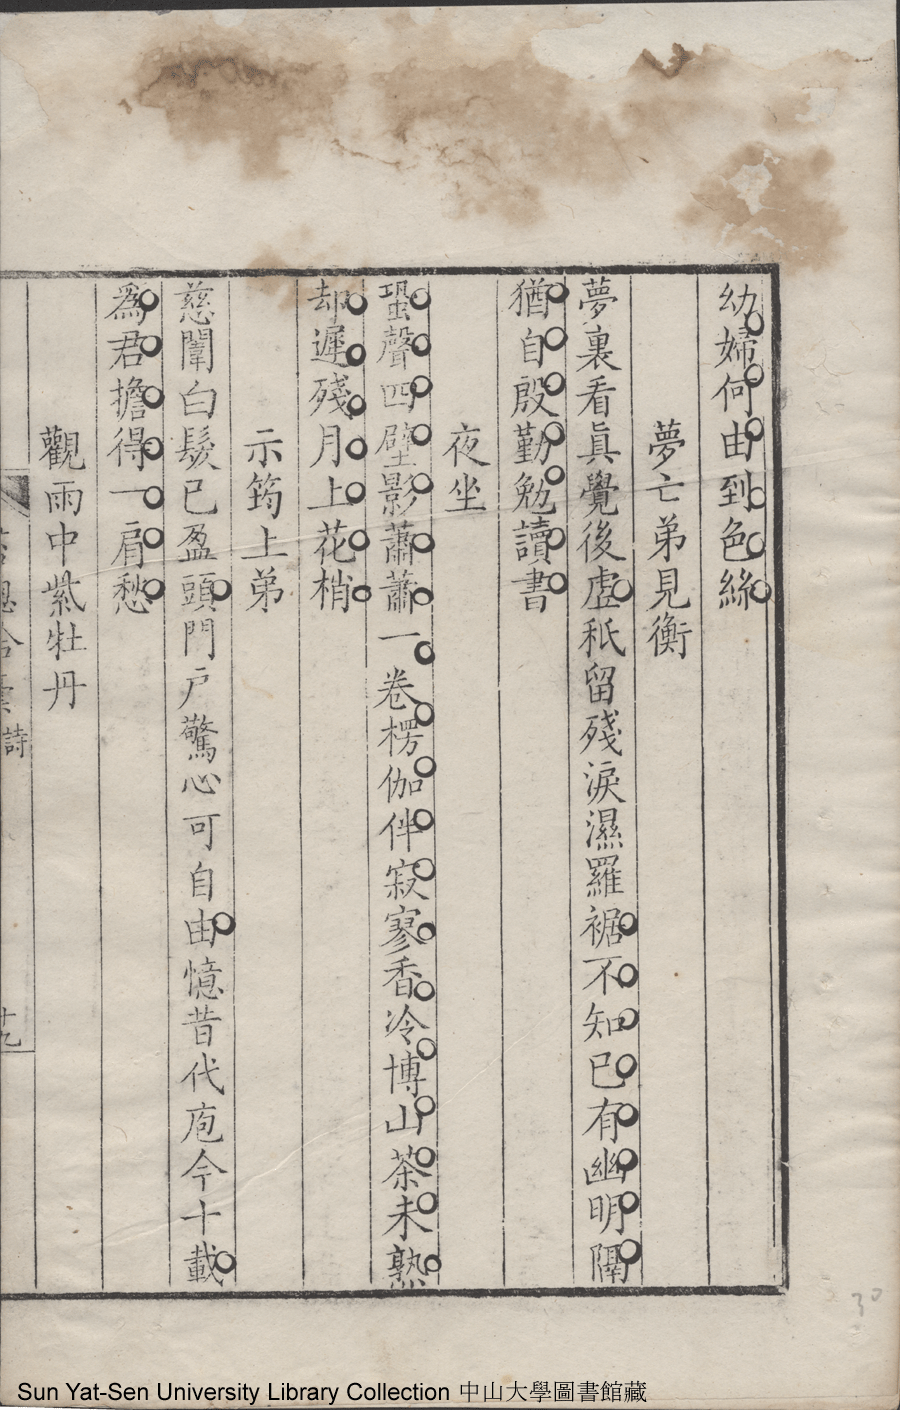 幼婦何由到色絲
夢亡弟見衡
夢裏看眞覺後虛秖留殘淚濕羅裾不知已有幽明隔
猶自殷勤勉讀書
夜坐
蛩聲四壁影蕭蕭一卷楞伽伴寂寥香冷博山茶未熟
却遲殘月上花梢
示筠上弟
慈闈白髮已盈頭門戶驚心可自由憶昔代庖今十載
爲君擔得一肩愁
觀雨中紫牡丹
詩
十九
30
Sun Yat-Sen University Library Collection 中山大學圖書館藏